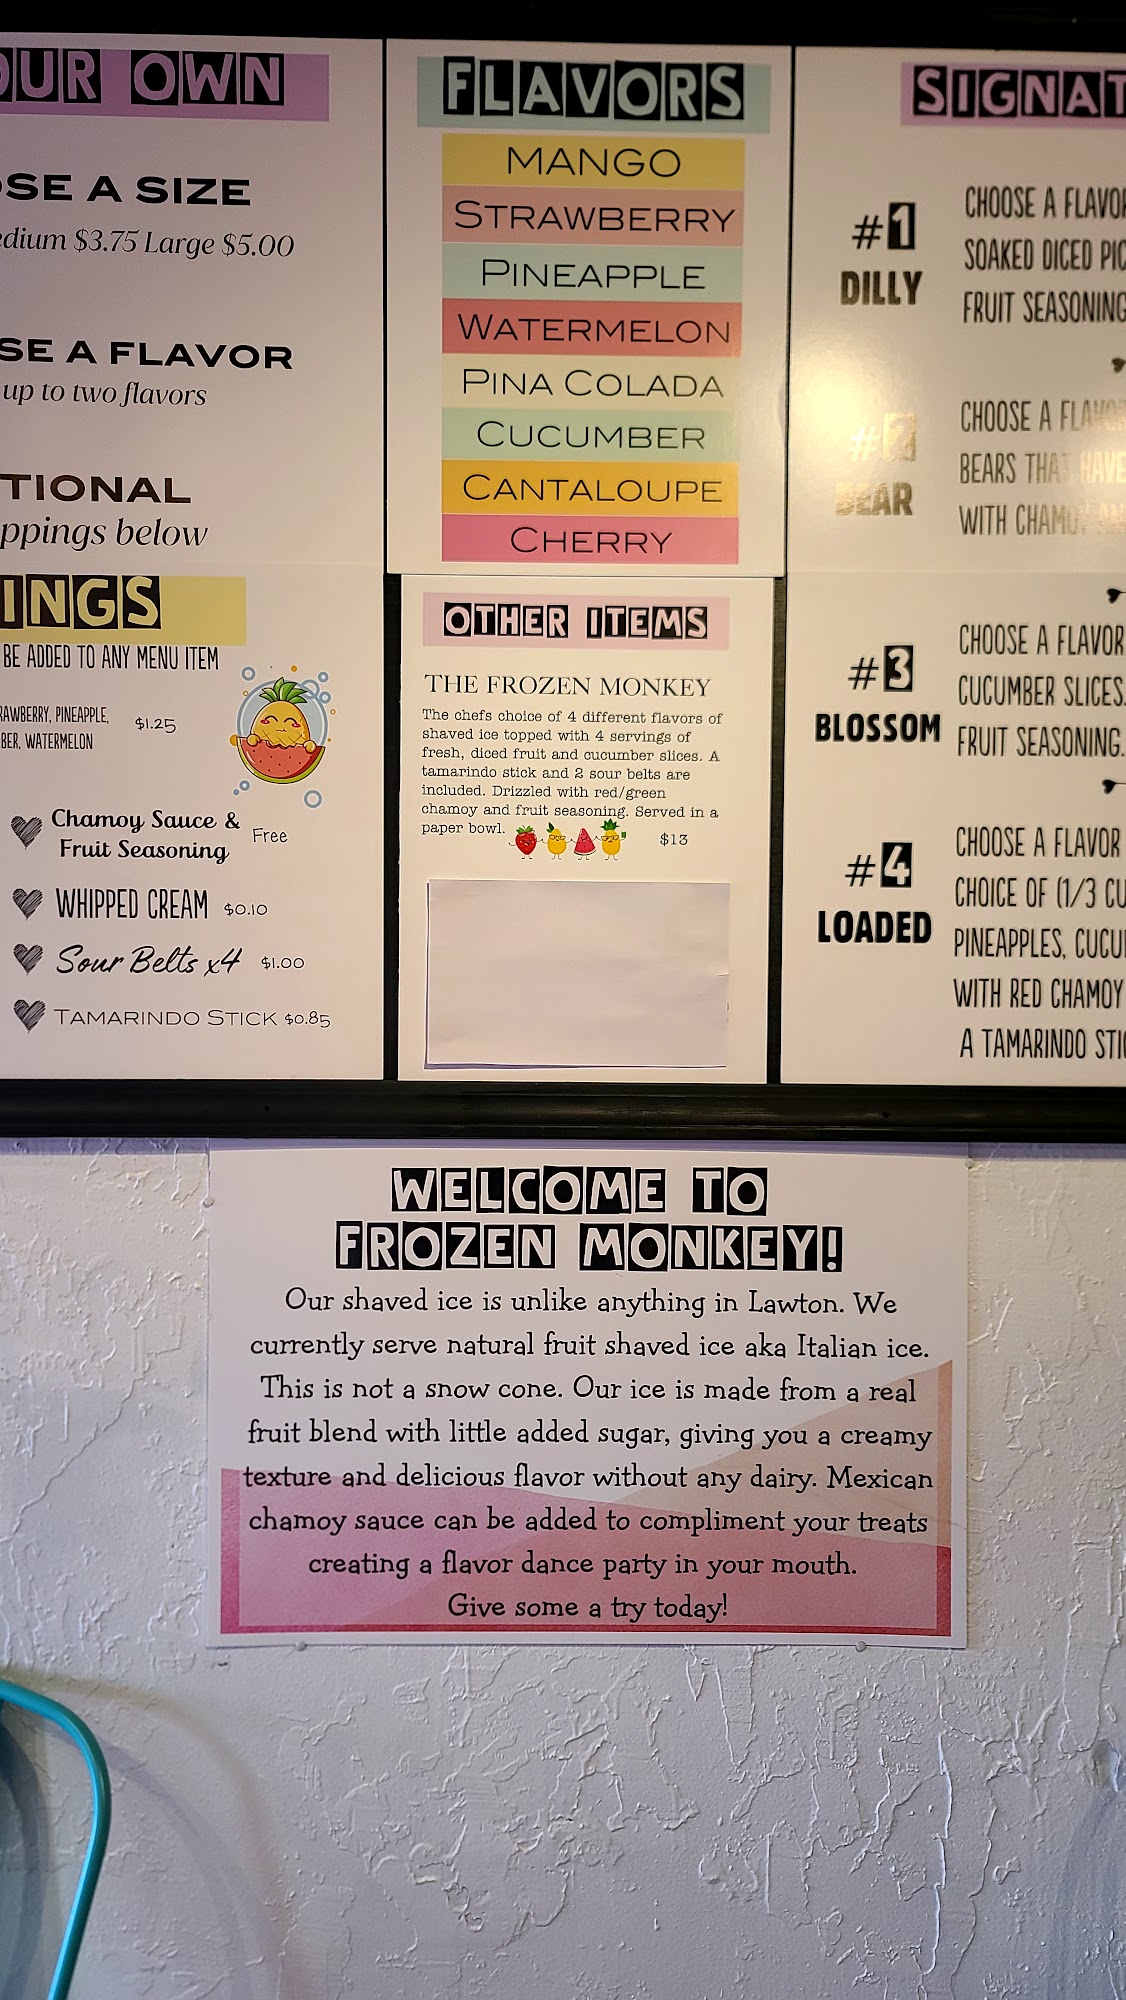 OUR OWN
OSE A SIZE
edium $3.75 Large $5.00
SE A FLAVOR
up to two flavors
TIONAL
ppings below
INGS
BE ADDED TO ANY MENU ITEM
RAWBERRY, PINEAPPLE, $1.25
BER, WATERMELON
Chamoy Sauce & Free
Fruit Seasoning
WHIPPED CREAM $0.10
Sour Belts x4 $1.00
TAMARINDO STICK $0.85
FLAVORS
MANGO
STRAWBERRY
PINEAPPLE
WATERMELON
PINA COLADA
CUCUMBER
CANTALOUPE
CHERRY
OTHER ITEMS
THE FROZEN MONKEY
The chefs choice of 4 different flavors of
shaved ice topped with 4 servings of
fresh, diced fruit and cucumber slices. A
tamarindo stick and 2 sour belts are
included. Drizzled with red/green
chamoy and fruit seasoning. Served in a
paper bowl. $13
SIGNAT
#1
DILLY
CHOOSE A FLAVOR
SOAKED DICED PIC
FRUIT SEASONING
#2
BEAR
CHOOSE A FLAVOR
BEARS THAT HAVE
WITH CHAMOY AN
#3
BLOSSOM
CHOOSE A FLAVOR
CUCUMBER SLICES.
FRUIT SEASONING.
#4
LOADED
CHOOSE A FLAVOR
CHOICE OF (1/3 CU
PINEAPPLES, CUCU
WITH RED CHAMOY
A TAMARINDO STI
WELCOME TO
FROZEN MONKEY!
Our shaved ice is unlike anything in Lawton. We
currently serve natural fruit shaved ice aka Italian ice.
This is not a snow cone. Our ice is made from a real
fruit blend with little added sugar, giving you a creamy
texture and delicious flavor without any dairy. Mexican
chamoy sauce can be added to compliment your treats
creating a flavor dance party in your mouth.
Give some a try today!